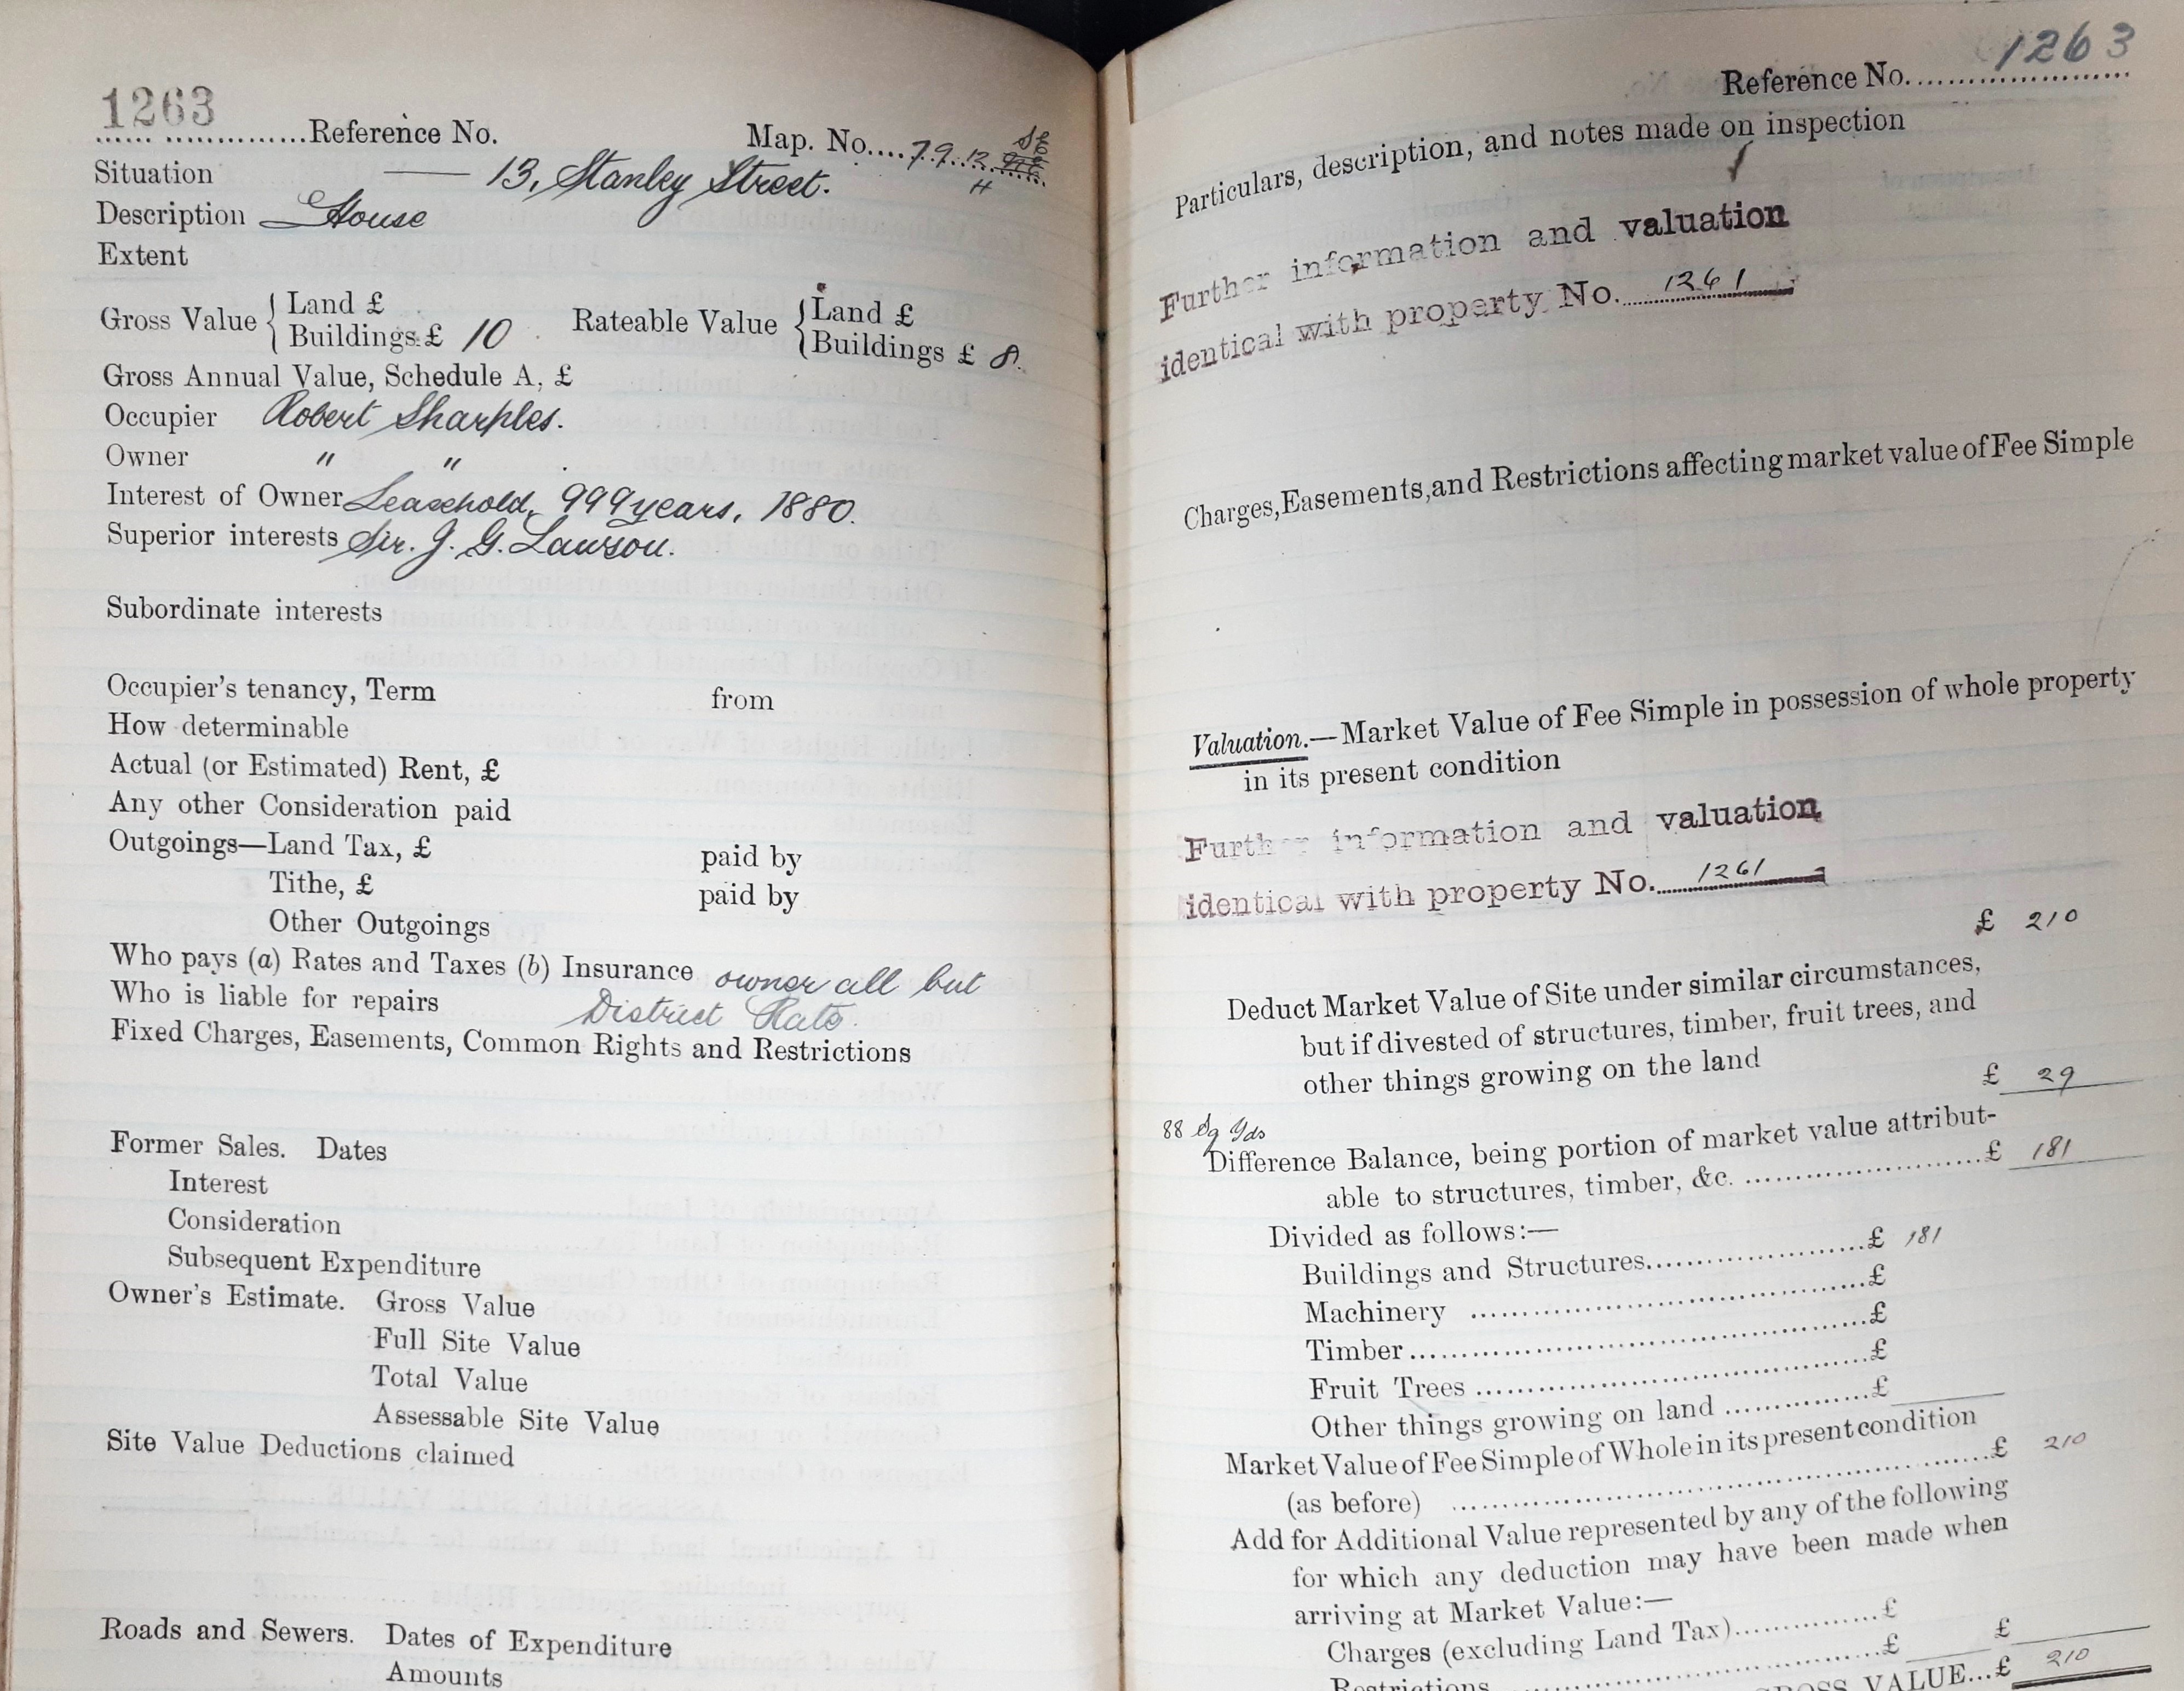 1263
Reference No. Map. No. 79.12 SE
H
Situation — 13, Stanley Street.
Description House
Extent
Gross Value { Land £ Rateable Value { Land £
Buildings £ 10 Buildings £ 8.
Gross Annual Value, Schedule A, £
Occupier Robert Sharples.
Owner " "
Interest of Owner Leasehold, 999 years, 1880.
Superior interests Sir. J. G. Lawson.
Subordinate interests
Occupier's tenancy, Term from
How determinable
Actual (or Estimated) Rent, £
Any other Consideration paid
Outgoings—Land Tax, £ paid by
Tithe, £ paid by
Other Outgoings
Who pays (a) Rates and Taxes (b) Insurance owner all but
Who is liable for repairs District Rate.
Fixed Charges, Easements, Common Rights and Restrictions
Former Sales. Dates
Interest
Consideration
Subsequent Expenditure
Owner's Estimate. Gross Value
Full Site Value
Total Value
Assessable Site Value
Site Value Deductions claimed
Roads and Sewers. Dates of Expenditure
Amounts
Reference No. 1263
Particulars, description, and notes made on inspection
Further information and valuation
identical with property No. 1261
Charges, Easements, and Restrictions affecting market value of Fee Simple
Valuation.—Market Value of Fee Simple in possession of whole property
in its present condition
Further information and valuation
identical with property No. 1261
£ 210
Deduct Market Value of Site under similar circumstances,
but if divested of structures, timber, fruit trees, and
other things growing on the land £ 29
88 Sq Yds
Difference Balance, being portion of market value attribut-
able to structures, timber, &c. £ 181
Divided as follows:—
Buildings and Structures £ 181
Machinery £
Timber £
Fruit Trees £
Other things growing on land £
Market Value of Fee Simple of Whole in its present condition
(as before) £ 210
Add for Additional Value represented by any of the following
for which any deduction may have been made when
arriving at Market Value:—
Charges (excluding Land Tax) £
Restrictions £ £
GROSS VALUE...£ 210